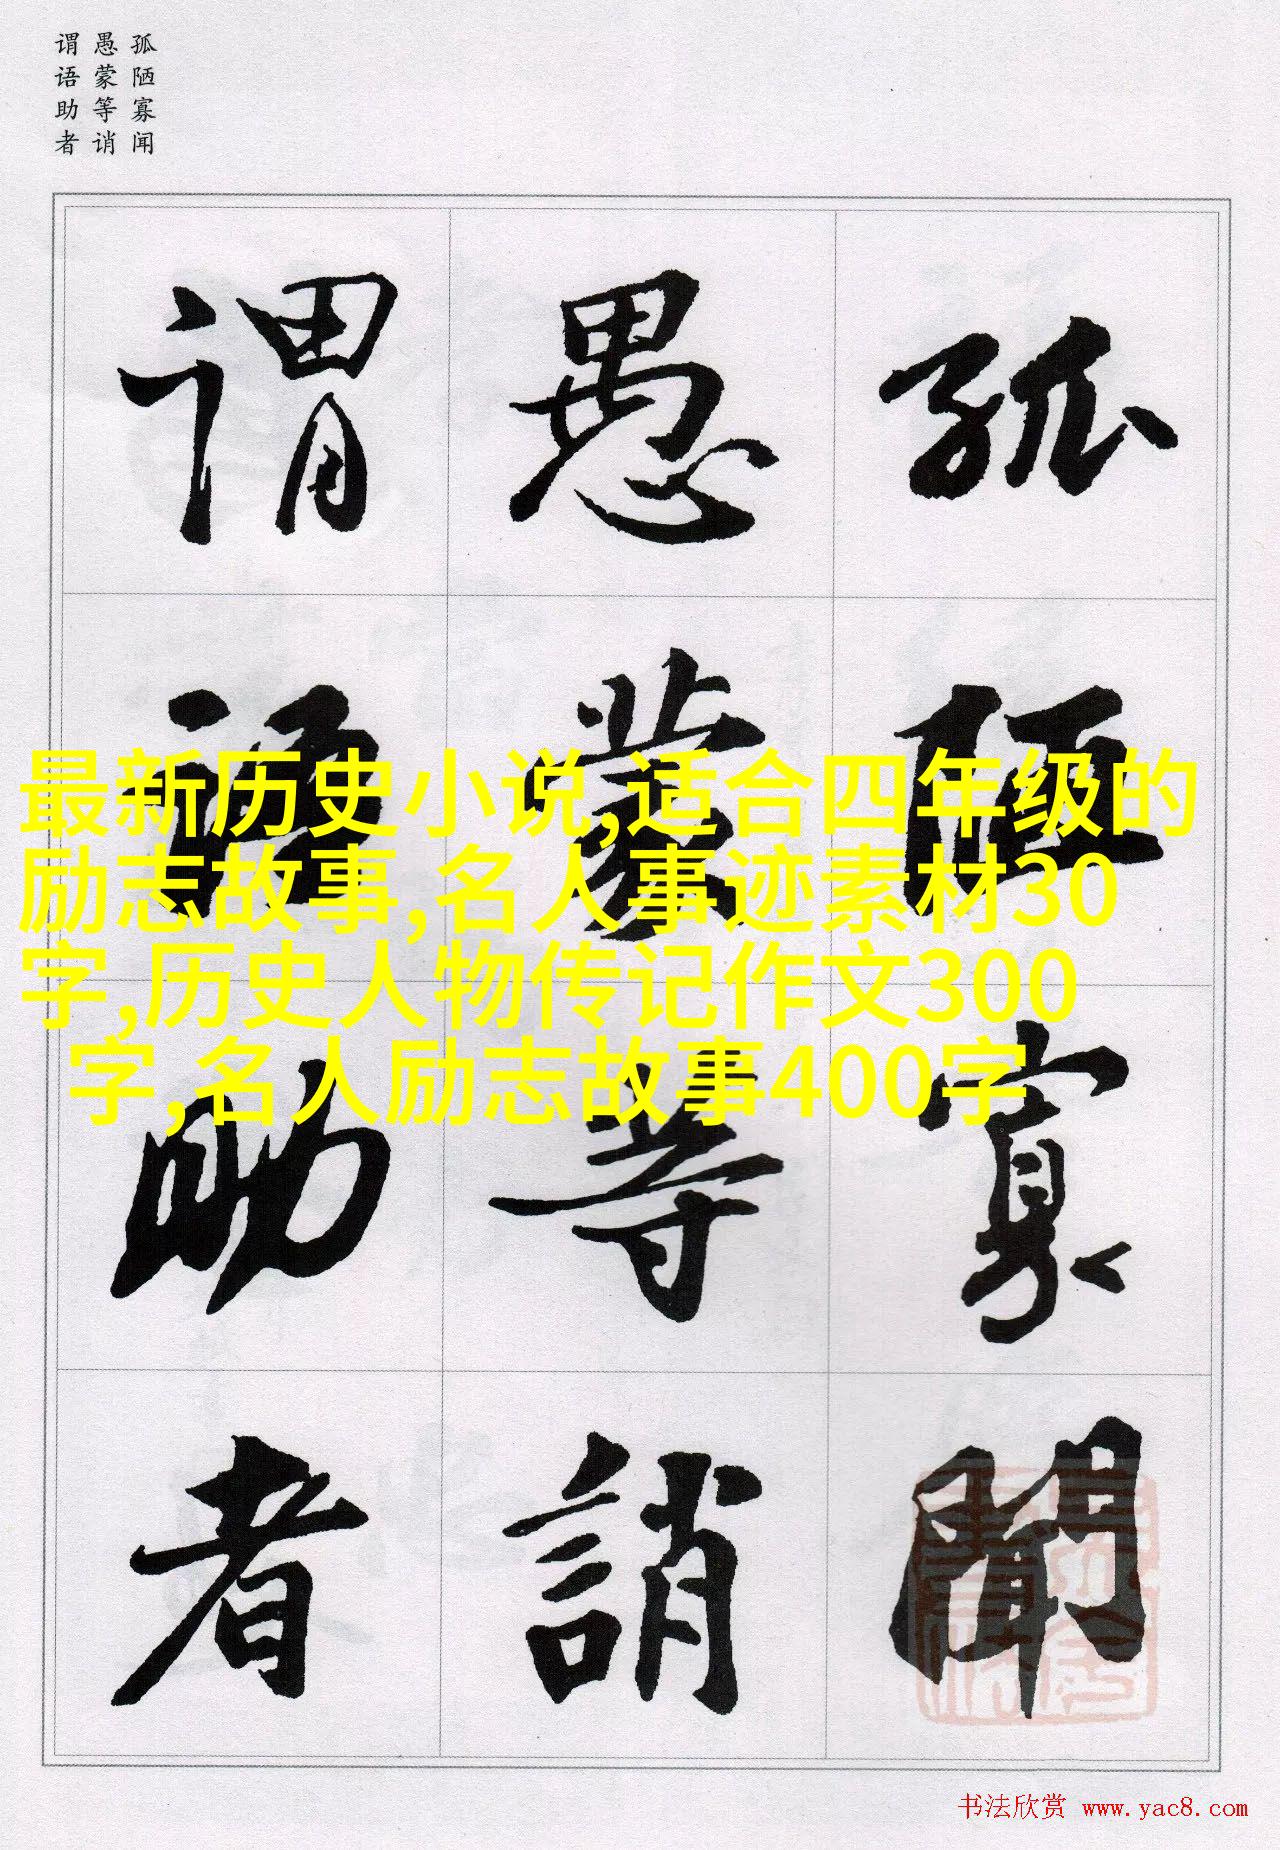 孤陋寡闻
愚蒙等诮
谓语助者
孤陋寡闻
愚蒙等誚
谓语助者
最新历史小说,适合四年级的
励志故事,名人事迹素材30
字,历史人物传记作文300
字,名人励志故事400字
书法欣赏 www.yac8.com